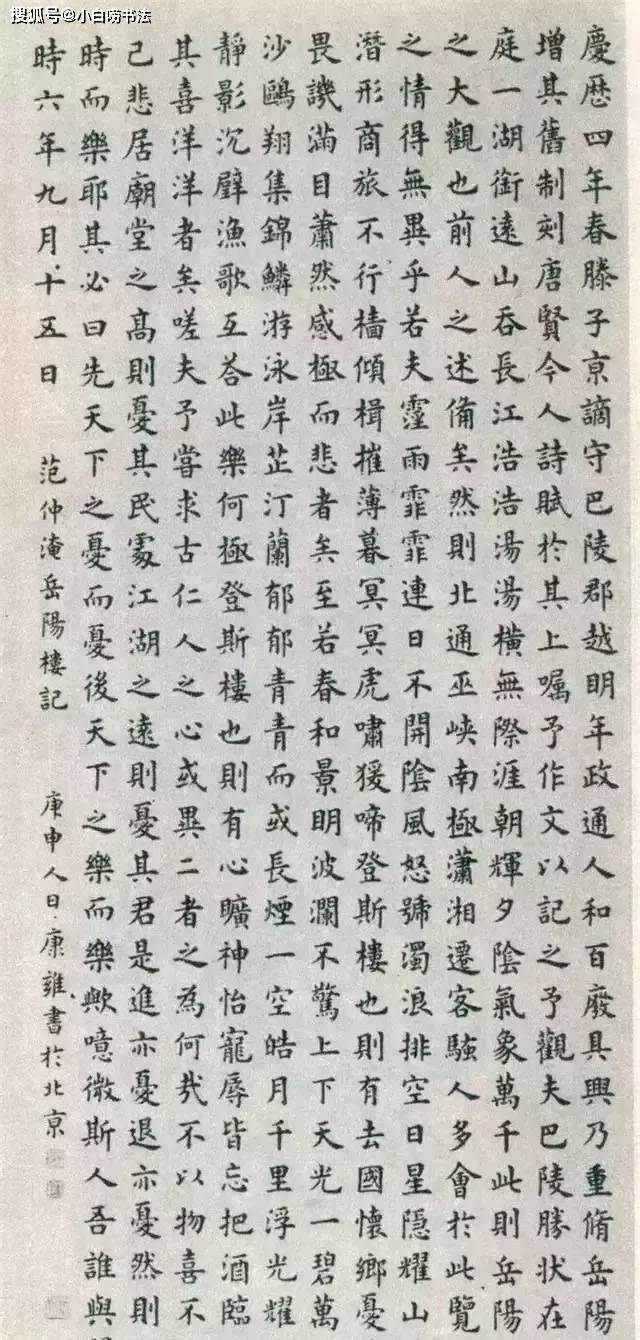 搜狐号@小白唠书法
慶歷四年春滕子京謫守巴陵郡越明年政通人和百廢具興乃重脩岳陽
增其舊制刻唐賢今人詩賦於其上囑予作文以記之予觀夫巴陵勝状在
庭一湖銜遠山吞長江浩浩湯湯橫無際涯朝輝夕陰氣象萬千此則岳陽
之大觀也前人之述備矣然則北通巫峽南極瀟湘遷客騷人多會於此覽
之情得無異乎若夫霪雨霏霏連日不開陰風怒號濁浪排空日星隱耀山
潛形商旅不行檣傾楫摧薄暮冥冥虎嘯猨啼登斯樓也則有去國懷鄉憂
畏譏滿目蕭然感極而悲者矣至若春和景明波瀾不驚上下天光一碧萬
沙鷗翔集錦鱗游泳岸芷汀蘭郁郁青青而或長煙一空皓月千里浮光耀
靜影沉璧漁歌互荅此樂何極登斯樓也則有心曠神怡寵辱皆忘把酒臨
其喜洋洋者矣嗟夫予嘗求古仁人之心或異二者之為何㦲不以物喜不
己悲居廟堂之高則憂其民處江湖之遠則憂其君是進亦憂退亦憂然則
時而樂耶其必曰先天下之憂而憂後天下之樂而樂歟噫微斯人吾誰與
時六年九月十五日 范仲淹岳陽樓記 庚申人日康雍書於北京